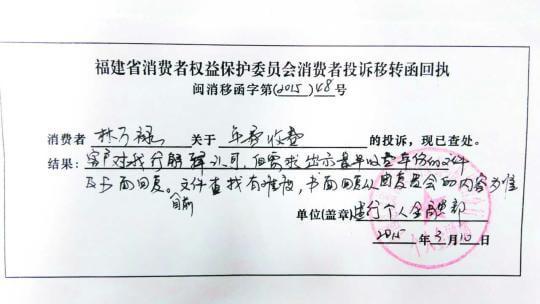 福建省消费者权益保护委员会消费者投诉移转函回执
闽消移函字(2015)48号
消费者 林 关于 年费收费 的投诉，现已查处。
结果：客户对我行解释认可，但需求出示首年收费年份的文件
及书面回复。文件查找有难度，书面回复以回复贵会的内容为准
目前
单位(盖章)建行个人金融部
2015年3月10日